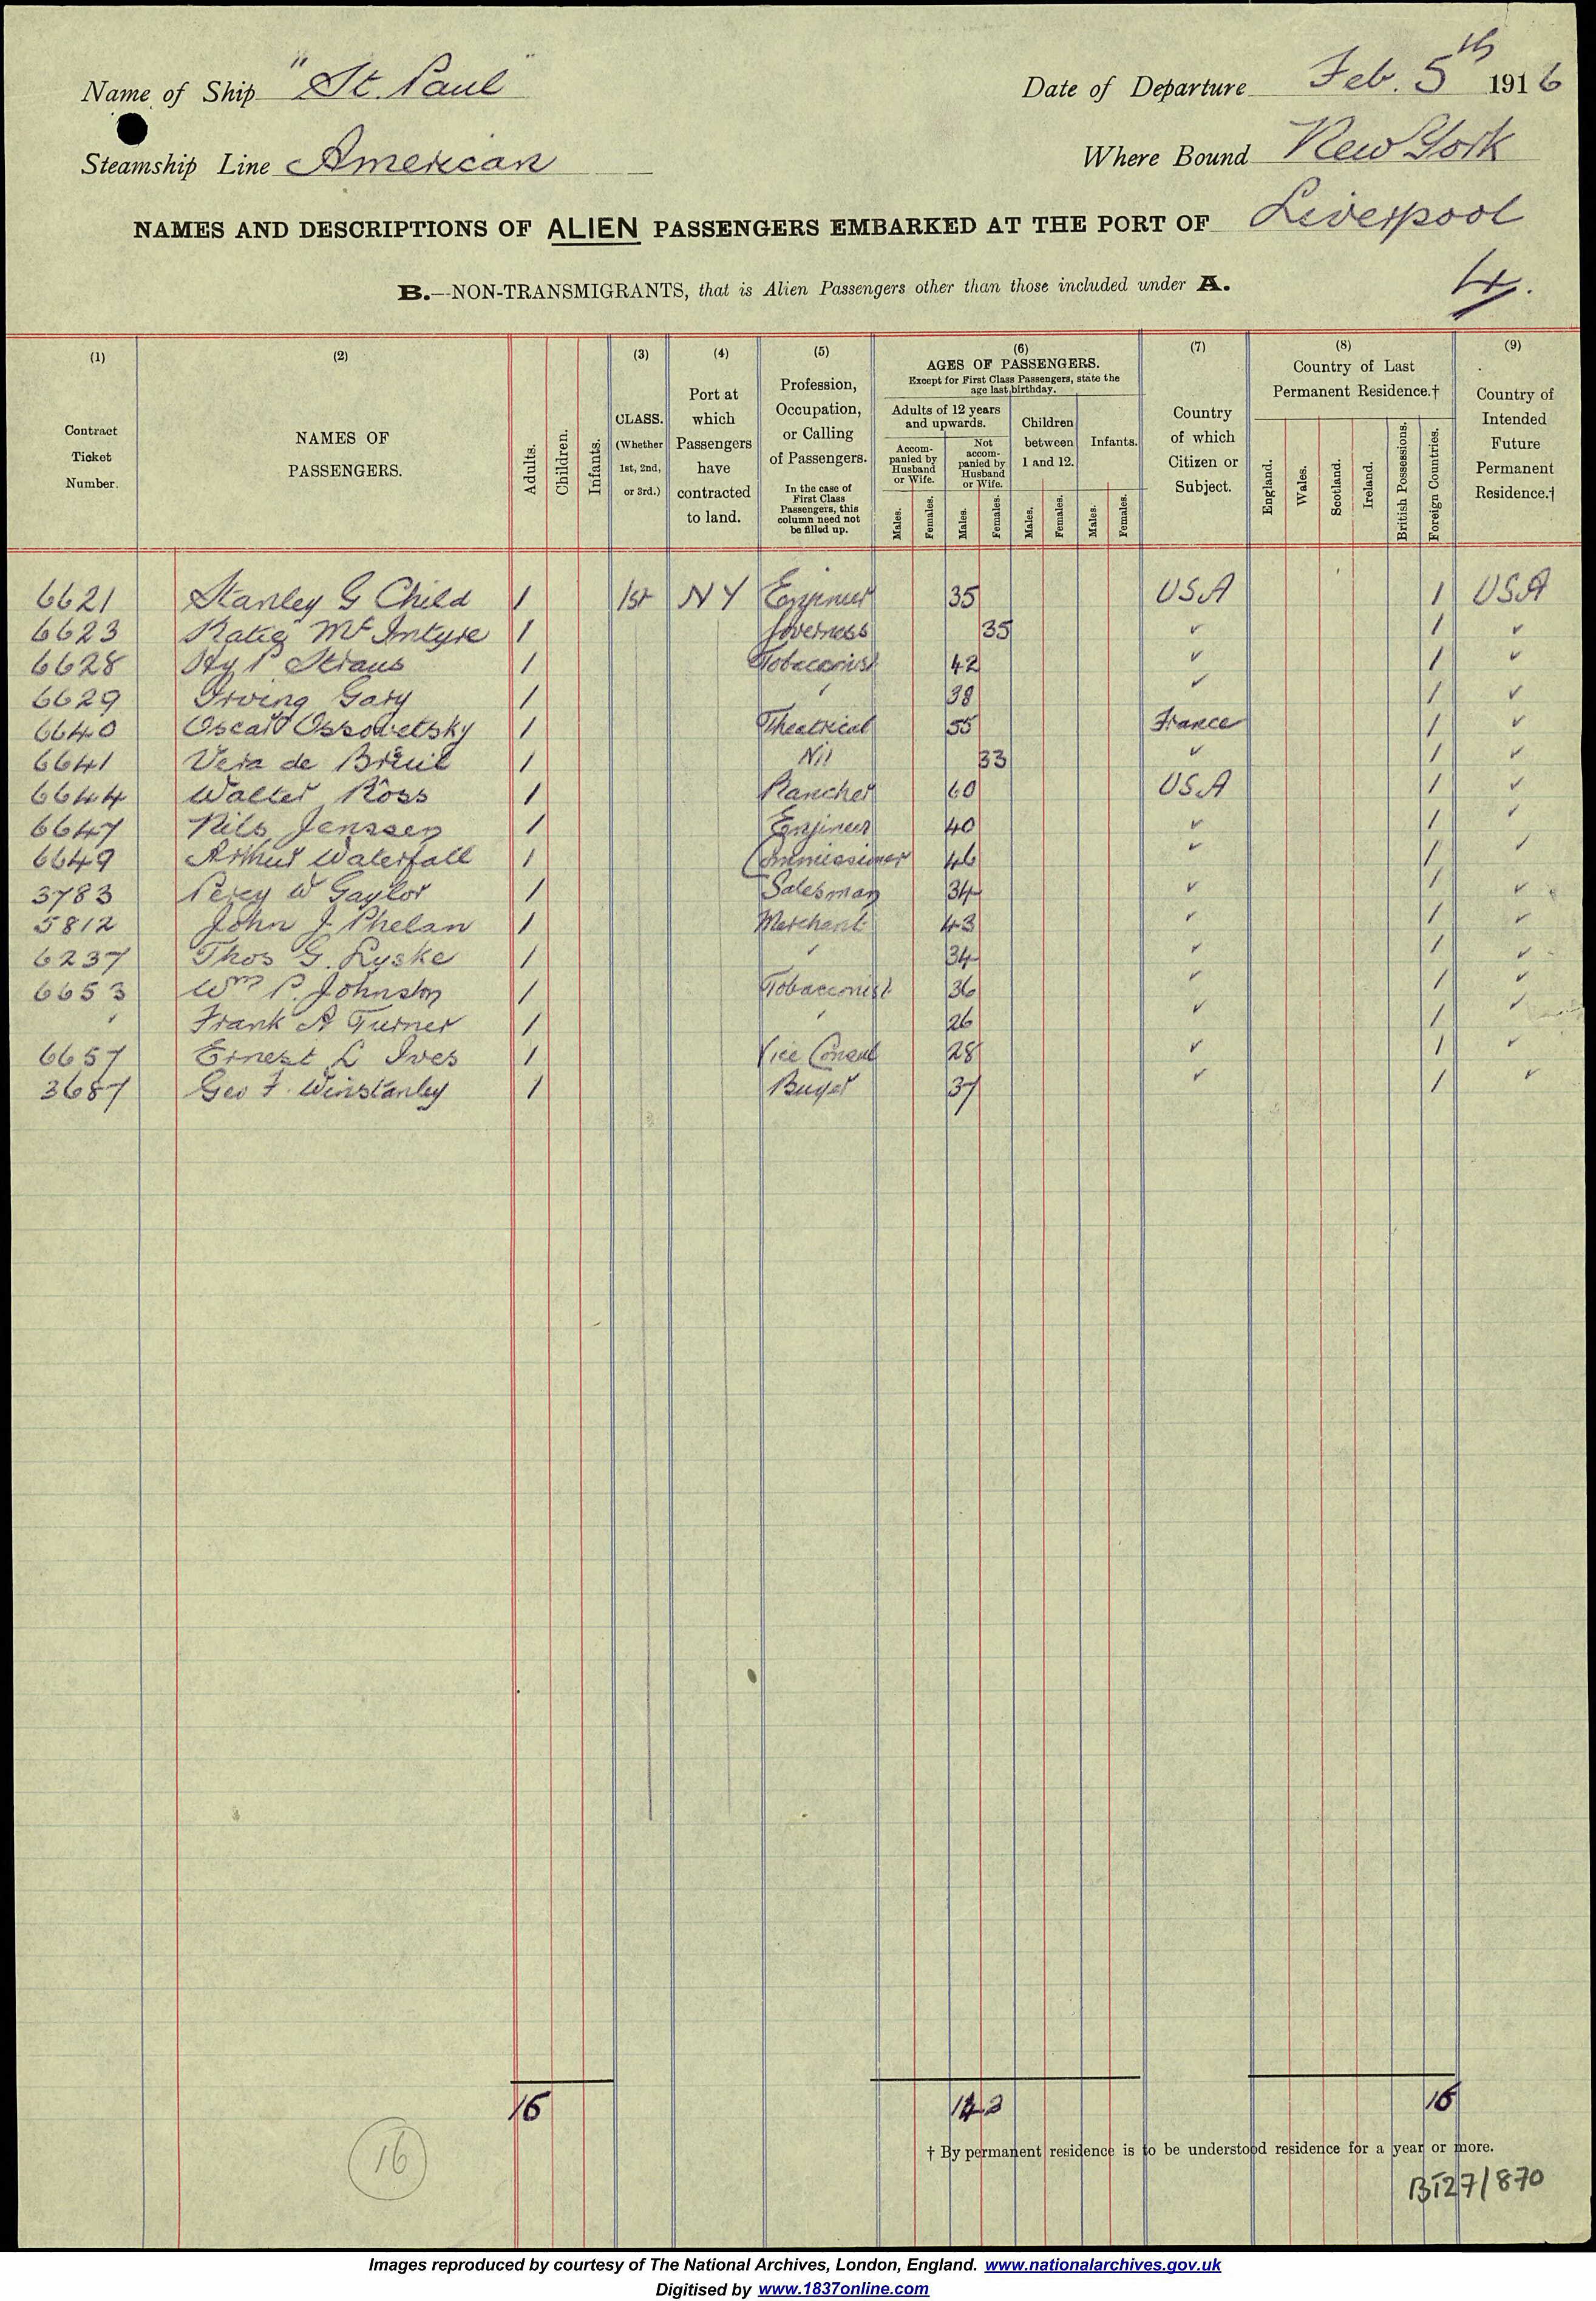 Name of Ship "St. Paul" Date of Departure Feb. 5th 1916
Steamship Line American Where Bound New York
NAMES AND DESCRIPTIONS OF ALIEN PASSENGERS EMBARKED AT THE PORT OF Liverpool
B.—NON-TRANSMIGRANTS, that is Alien Passengers other than those included under A. 4.
(1) Contract Ticket Number.
(2) NAMES OF PASSENGERS.
Adults. Children. Infants.
(3) CLASS. (Whether 1st, 2nd, or 3rd.)
(4) Port at which Passengers have contracted to land.
(5) Profession, Occupation, or Calling of Passengers. In the case of First Class Passengers, this column need not be filled up.
(6) AGES OF PASSENGERS. Except for First Class Passengers, state the age last birthday.
Adults of 12 years and upwards. Children between 1 and 12. Infants.
Accompanied by Husband or Wife. Not accompanied by Husband or Wife.
Males. Females. Males. Females. Males. Females. Males. Females.
(7) Country of which Citizen or Subject.
(8) Country of Last Permanent Residence.†
England. Wales. Scotland. Ireland. British Possessions. Foreign Countries.
(9) Country of Intended Future Permanent Residence.†
6621 Stanley G Child 1 1st NY Engineer 35 USA 1 USA
6623 Katie McIntyre 1 Governess 35 ✓ 1 ✓
6628 Hy P Straus 1 Tobacconist 42 ✓ 1 ✓
6629 Irving Gary 1 " 38 ✓ 1 ✓
6640 Oscar Ossovetsky 1 Theatrical 55 France 1 ✓
6641 Vera de Breuil 1 Nil 33 ✓ 1 ✓
6644 Walter Ross 1 Rancher 60 USA 1 ✓
6647 Nils Jenssen 1 Engineer 40 ✓ 1 ✓
6649 Arthur Waterfall 1 Commissioner 46 ✓ 1 ✓
3783 Percy W Gaylor 1 Salesman 34 ✓ 1 ✓
5812 John J Phelan 1 Merchant 43 ✓ 1 ✓
6237 Thos G. Lyske 1 " 34 ✓ 1 ✓
6653 Wm P. Johnston 1 Tobacconist 36 ✓ 1 ✓
" Frank A Turner 1 " 26 ✓ 1 ✓
6657 Ernest L Ives 1 Vice Consul 28 ✓ 1 ✓
3687 Geo F. Winstanley 1 Buyer 37 ✓ 1 ✓
16 14 2 16
16
† By permanent residence is to be understood residence for a year or more.
BT27/870
Images reproduced by courtesy of The National Archives, London, England. www.nationalarchives.gov.uk
Digitised by www.1837online.com